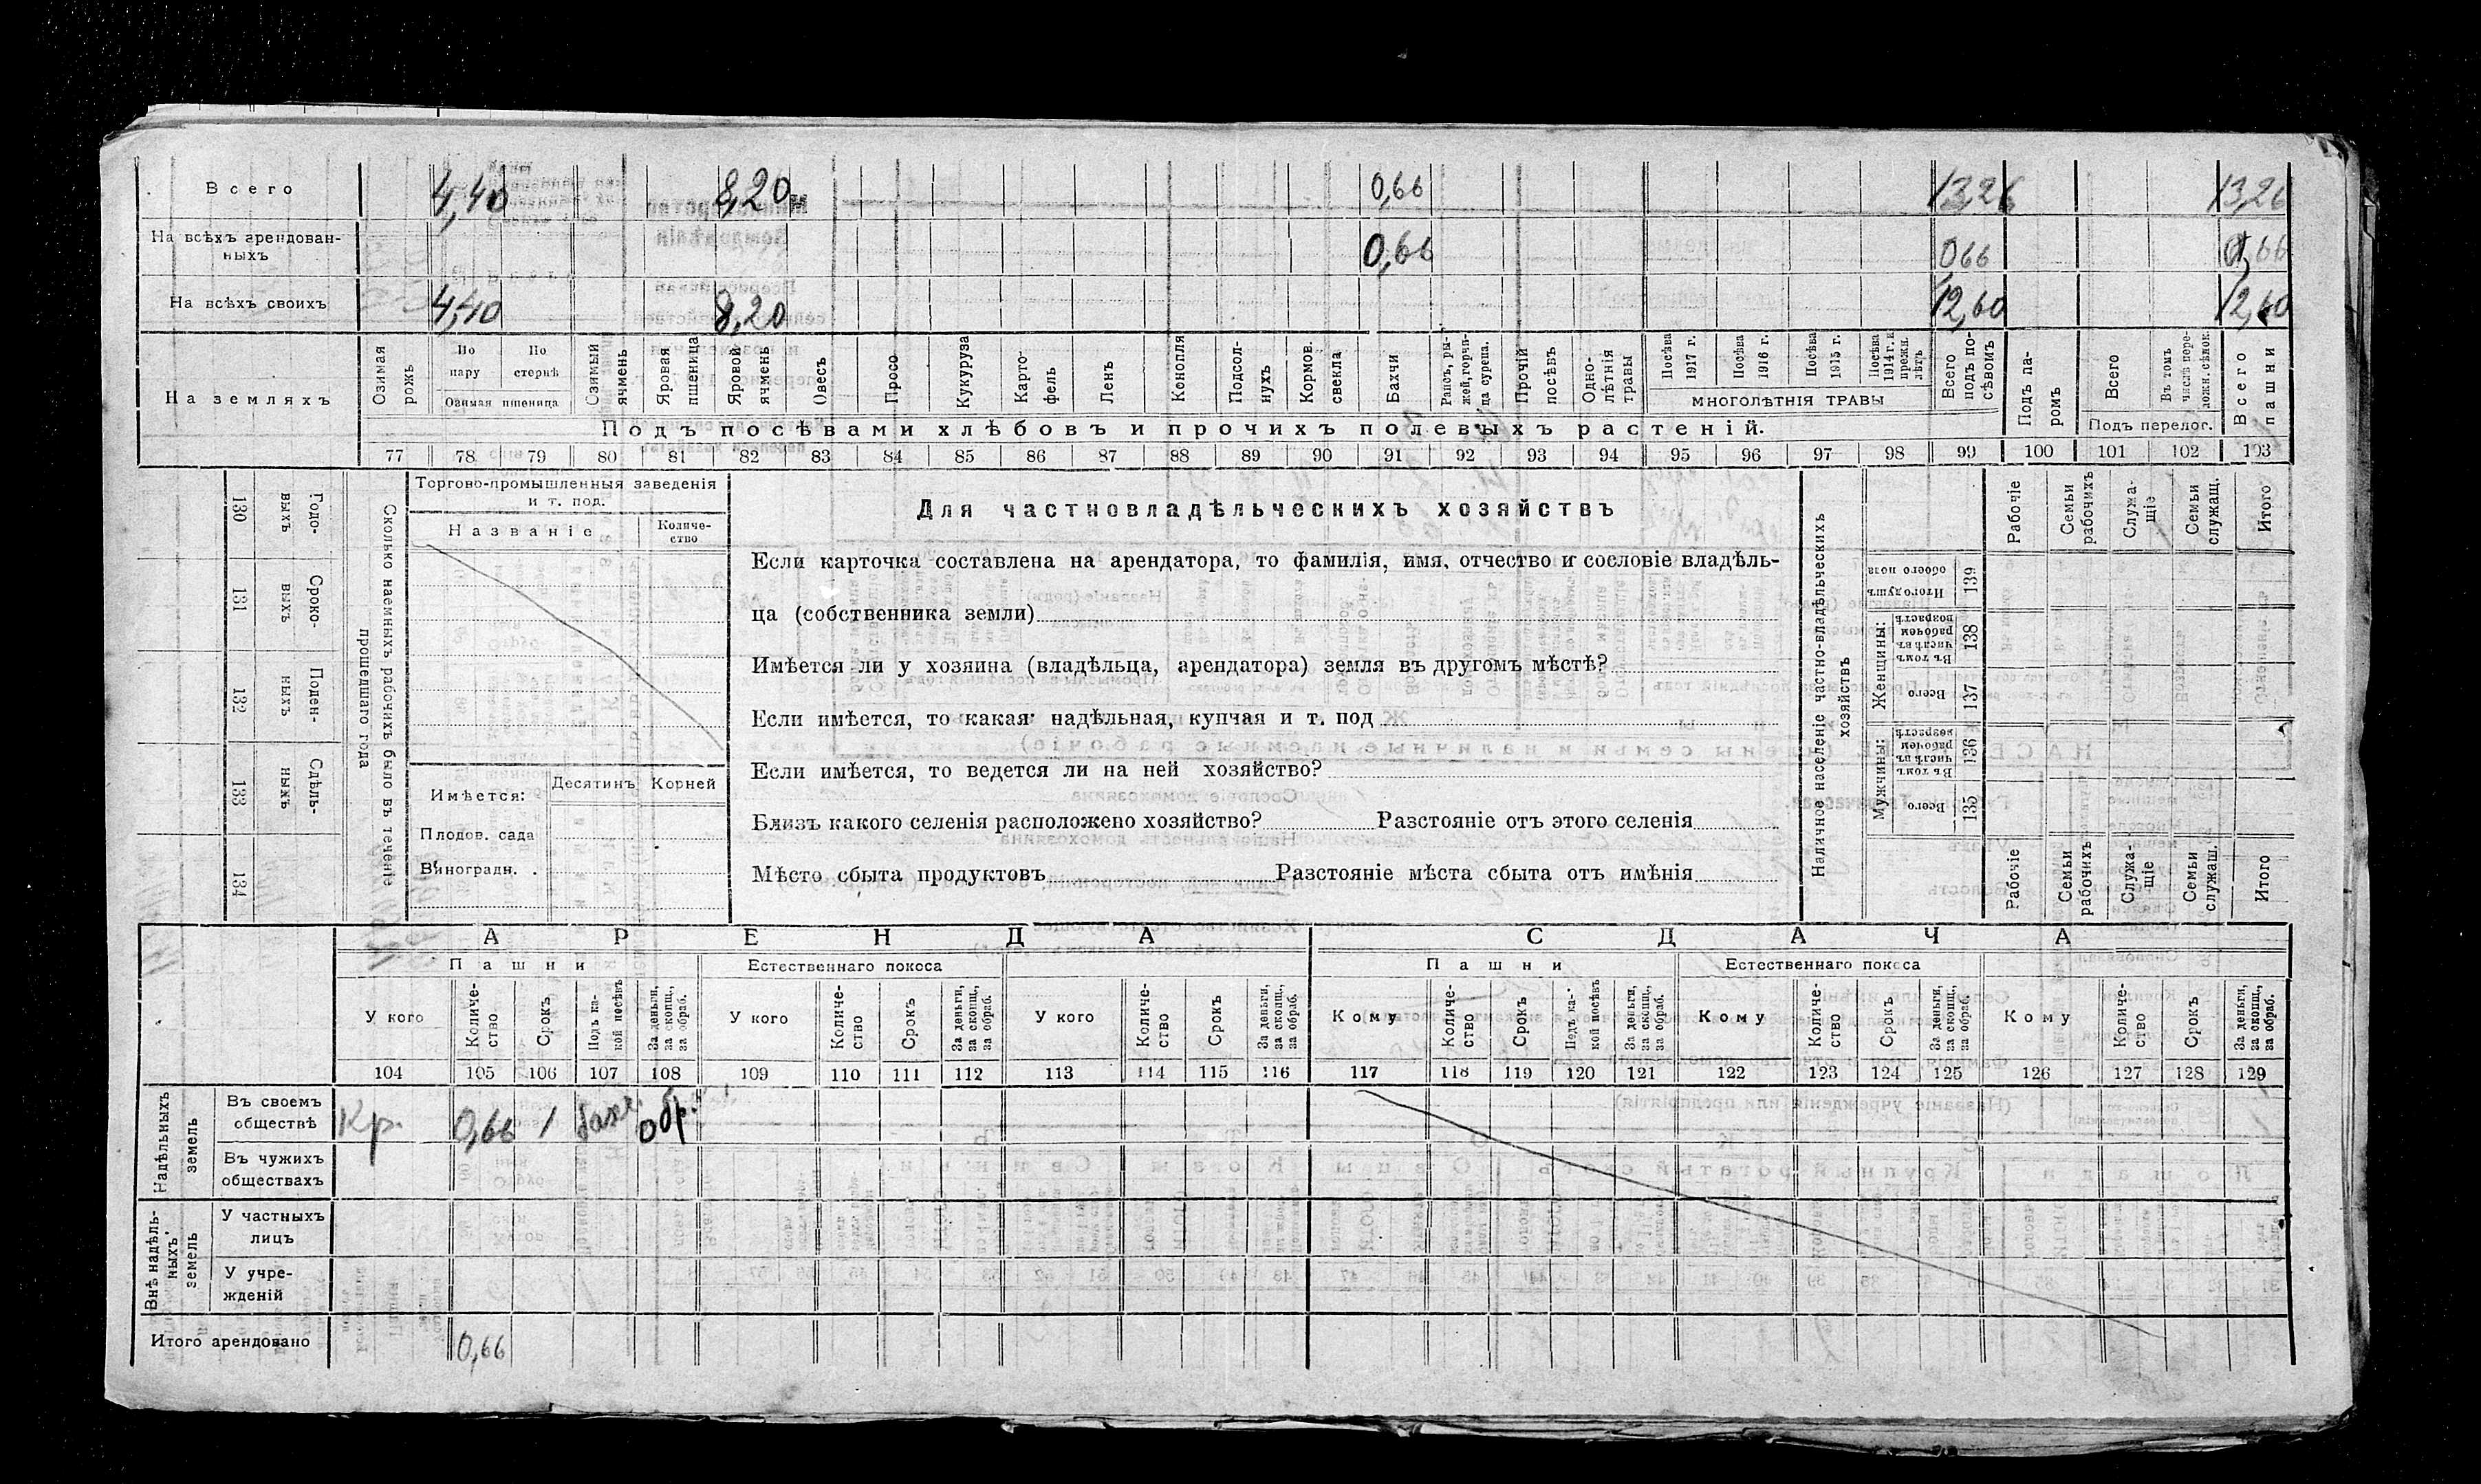 Всего 4,40 8,20 0,66 13,26 13,26
На всѣхъ арендован-
ныхъ 0,66 066 0,66
На всѣхъ своихъ 4,40 8,20 12,60 12,60
На земляхъ
Озимая рожь
По пару
По стернѣ
Озимая пшеница
Озимый ячмень
Яровая пшеница
Яровой ячмень
Овесъ
Просо
Кукуруза
Карто-
фель
Ленъ
Конопля
Подсол-
нухъ
Кормов. свекла
Бахчи
Рапсъ, ры-
жей, горчи-
ца сурепа.
Прочій посѣвъ
Одно-
лѣтнія травы
Посѣва 1917 г.
Посѣва 1916 г.
Посѣва 1915 г.
Посѣва 1914 г. и прежн. лѣтъ
МНОГОЛѢТНІЯ ТРАВЫ
Всего подъ по-
сѣвомъ
Подъ па-
ромъ
Всего
Въ томъ числѣ пере-
ложн. сѣнок.
Подъ перелог.
Всего пашни
Подъ посѣвами хлѣбовъ и прочихъ полевыхъ растеній.
77 78 79 80 81 82 83 84 85 86 87 88 89 90 91 92 93 94 95 96 97 98 99 100 101 102 103
130 Годо-
выхъ
131 Сроко-
выхъ
132 Поден-
ныхъ
133 Сдѣль-
ныхъ
134
Сколько наемныхъ рабочихъ было въ теченіе
прошедшаго года
Торгово-промышленныя заведенія
и т. под.
Названіе
Количе-
ство
Имѣется:
Десятинъ Корней
Плодов. сада
Виноградн. .
Для частновладѣльческихъ хозяйствъ
Если карточка составлена на арендатора, то фамилія, имя, отчество и сословіе владѣль-
ца (собственника земли)
Имѣется ли у хозяина (владѣльца, арендатора) земля въ другомъ мѣстѣ?
Если имѣется, то какая: надѣльная, купчая и т. под
Если имѣется, то ведется ли на ней хозяйство?
Близъ какого селенія расположено хозяйство? Разстояніе отъ этого селенія
Мѣсто сбыта продуктовъ Разстояніе мѣста сбыта отъ имѣнія
Наличное населеніе частно-владѣльческихъ
хозяйствъ
Рабочіе
Семьи рабочихъ
Служа-
щіе
Семьи служащ.
Итого
Итого душъ обоего пола 139
Женщины:
Въ томъ числѣ въ рабочем возрастѣ 138
Всего 137
Мужчины:
Въ томъ числѣ въ рабочем возрастѣ 136
Всего 135
Рабочіе
Семьи рабочихъ
Служа-
щіе
Семьи служащ.
Итого
АРЕНДА СДАЧА
Пашни Естественнаго покоса Пашни Естественнаго покоса
У кого
Количе-
ство
Срокъ
Подъ ка-
кой посѣвъ
За деньги, за скопщ., за обраб.
У кого
Количе-
ство
Срокъ
За деньги, за скопщ., за обраб.
У кого
Количе-
ство
Срокъ
За деньги, за скопщ., за обраб.
Кому
Количе-
ство
Срокъ
Подъ ка-
кой посѣвъ
За деньги, за скопщ., за обраб.
Кому
Количе-
ство
Срокъ
За деньги, за скопщ., за обраб.
Кому
Количе-
ство
Срокъ
За деньги, за скопщ., за обраб.
104 105 106 107 108 109 110 111 112 113 114 115 116 117 118 119 120 121 122 123 124 125 126 127 128 129
Надѣльныхъ
земель
Въ своемъ
обществѣ
Кр. 0,66 1 бахч. обр.
Въ чужихъ
обществахъ
Внѣ надѣль-
ныхъ
земель
У частныхъ
лицъ
У учре-
жденій
Итого арендовано 0,66